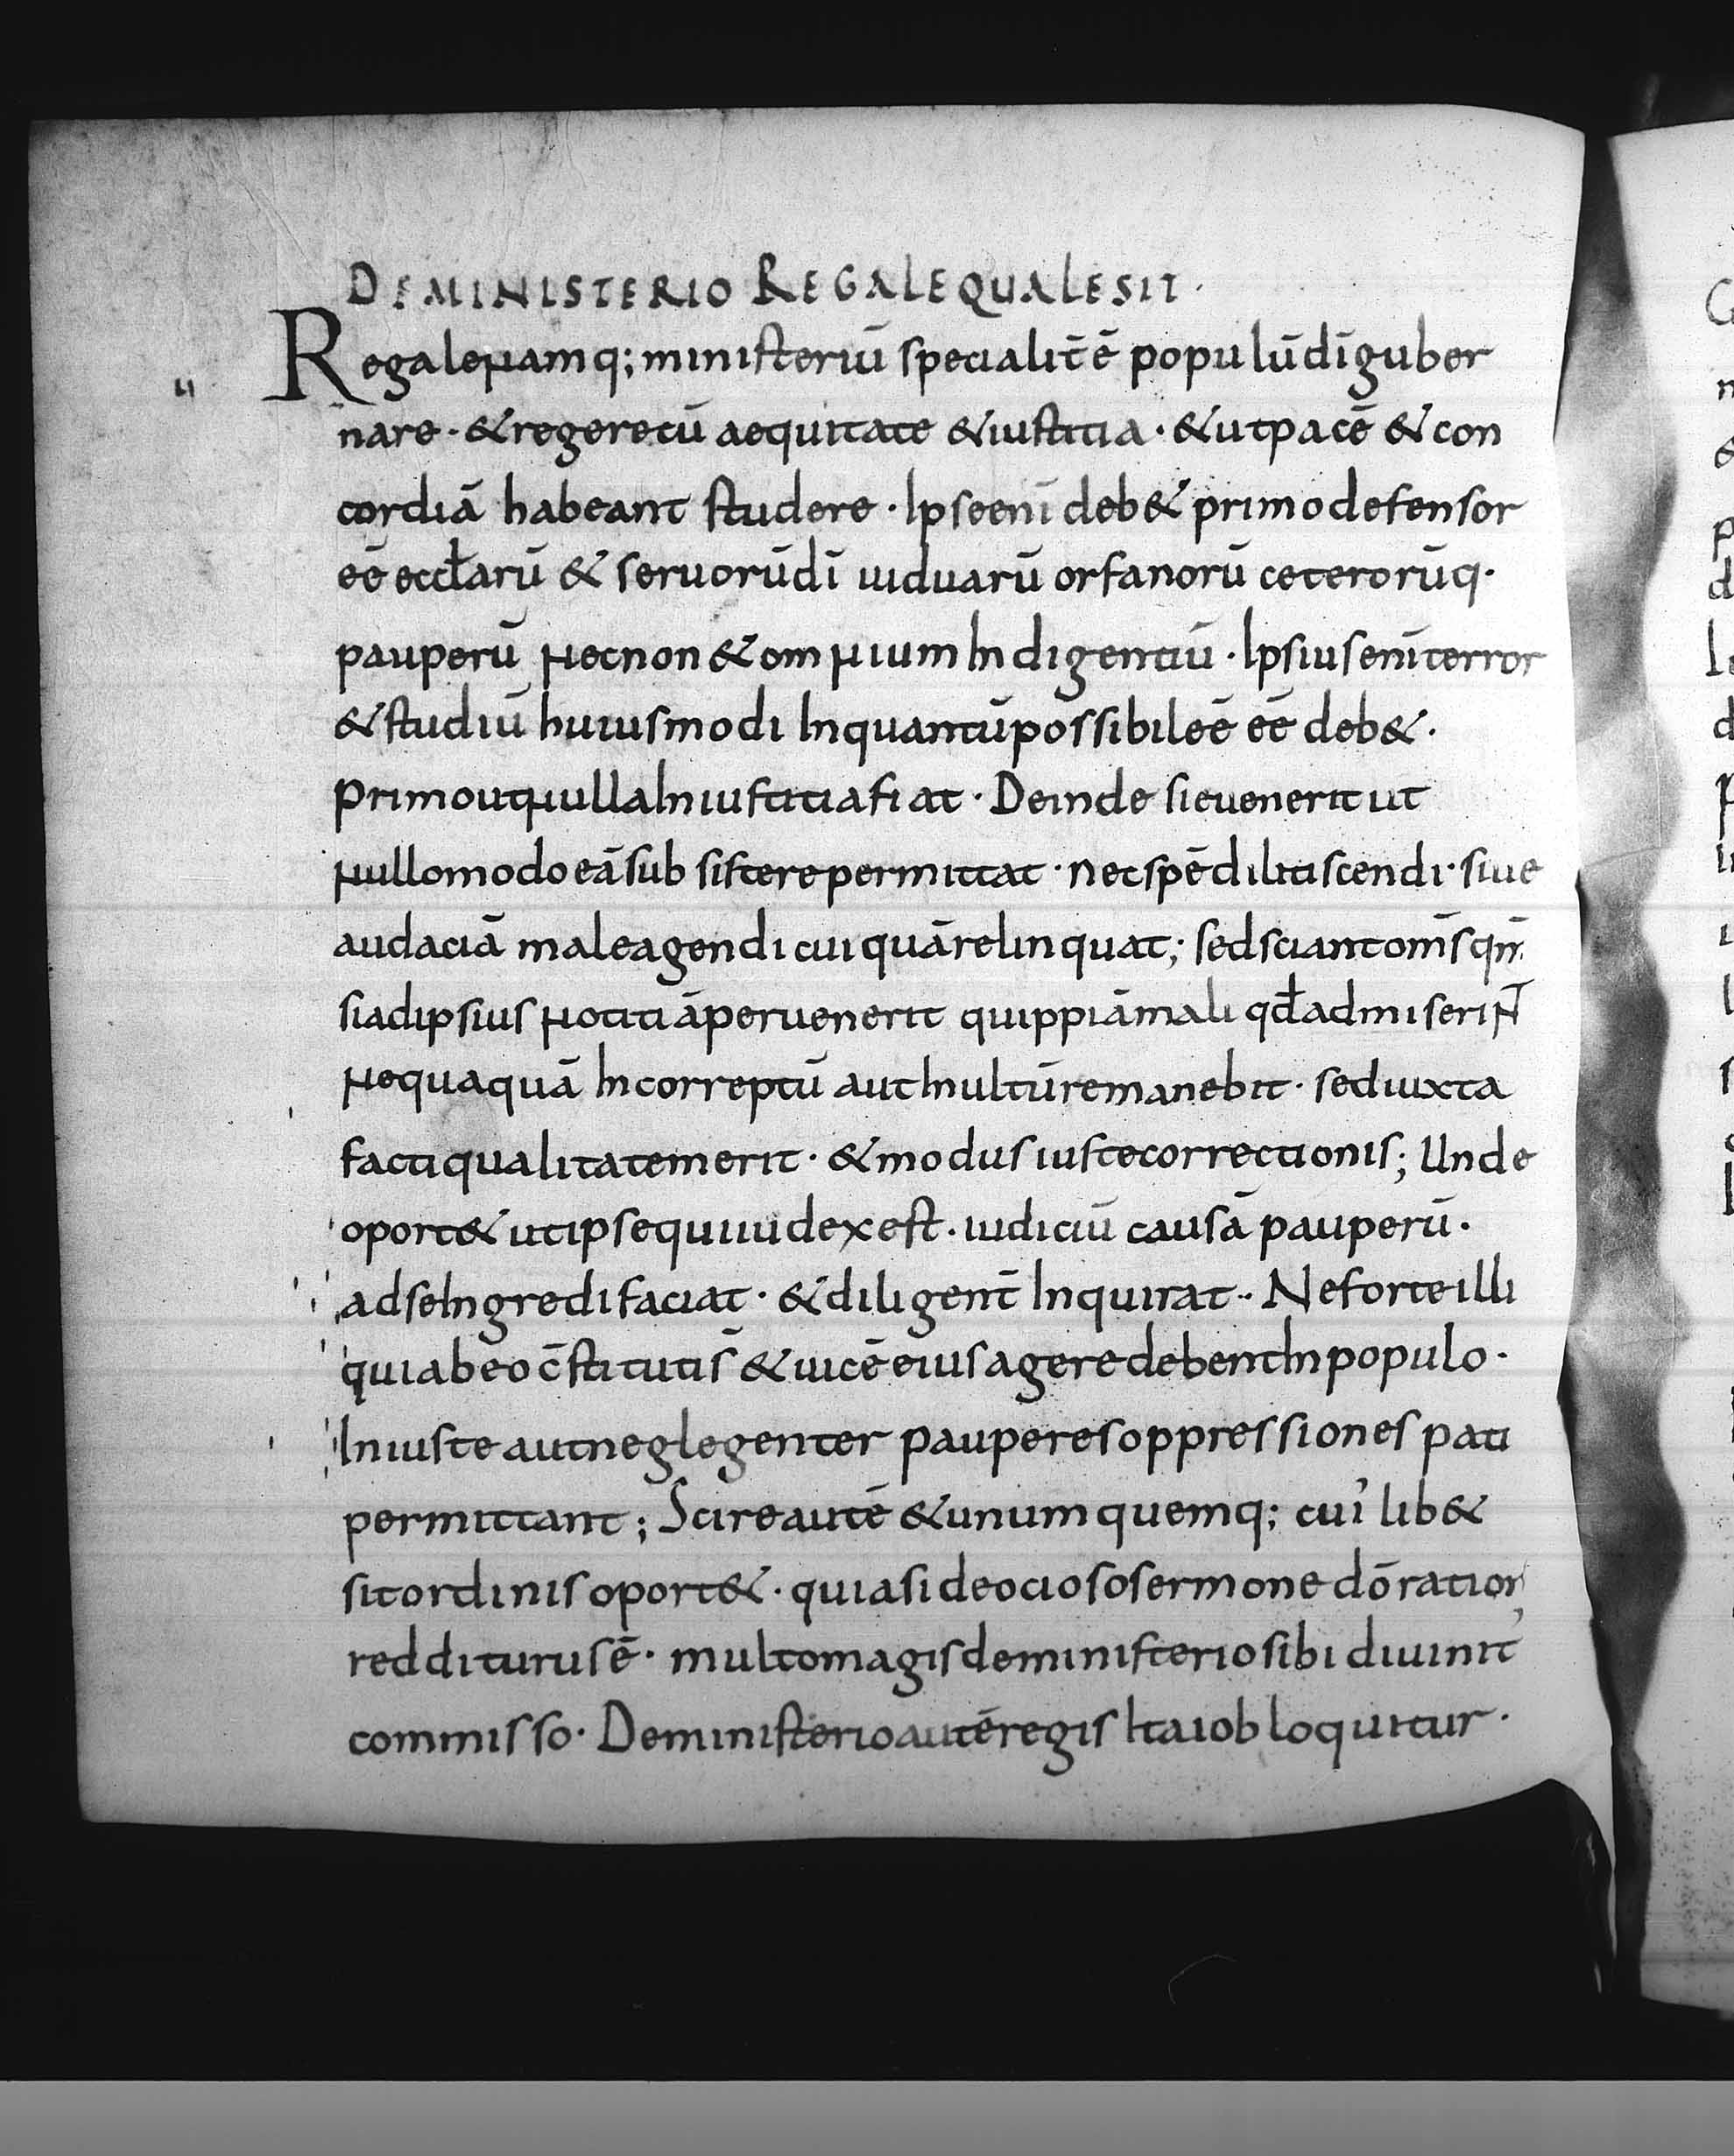 DEMINISTERIO REGALE QUALE SIT·
Regale namq; ministeriū specialit̄ ē populū dī guber
nare · & regere cū aequitate & iustitia · & ut pacē & con
cordiā habeant studere · Ipse enī deb& primo defensor
eē eccłarū & seruorū dī uiduarū orfanorū ceterorūq·
pauperū necnon & omnium Indigentiū · Ipsius enī terror
& studiū huiusmodi Inquantū possibile ē eē deb& ·
primo ut nulla Iniustitia fiat · Deinde si euenerit ut
nullo modo eā subsistere permittat · nec spē dilitiscendi · siue
audaciā male agendi cuiquā relinquat; sed sciant om̄s qm̄
si ad ipsius notitiā peruenerit quippiā mali qđ admiserin̄t
nequaquā Incorreptū aut Inultū remanebit · sed iuxta
facti qualitatem erit · & modus iuste correctionis; Unde
oport& ut ipse qui iudex est · iudiciū causā pauperū ·
ad se Ingredi faciat · & diligent̄ Inquirat · Ne forte illi
qui ab eo c̄stitutis̄ & uicē eius agere debent In populo ·
Iniuste aut neglegenter pauperes oppressiones pati
permittant; Scire autē & unumquemq; cui' lib&
sit ordinis oport& · quia si de ocioso sermone dō ration̄
redditurus ē · multo magis de ministerio sibi diuinit'
commisso · De ministerio autē regis Ita iob loquitur ·